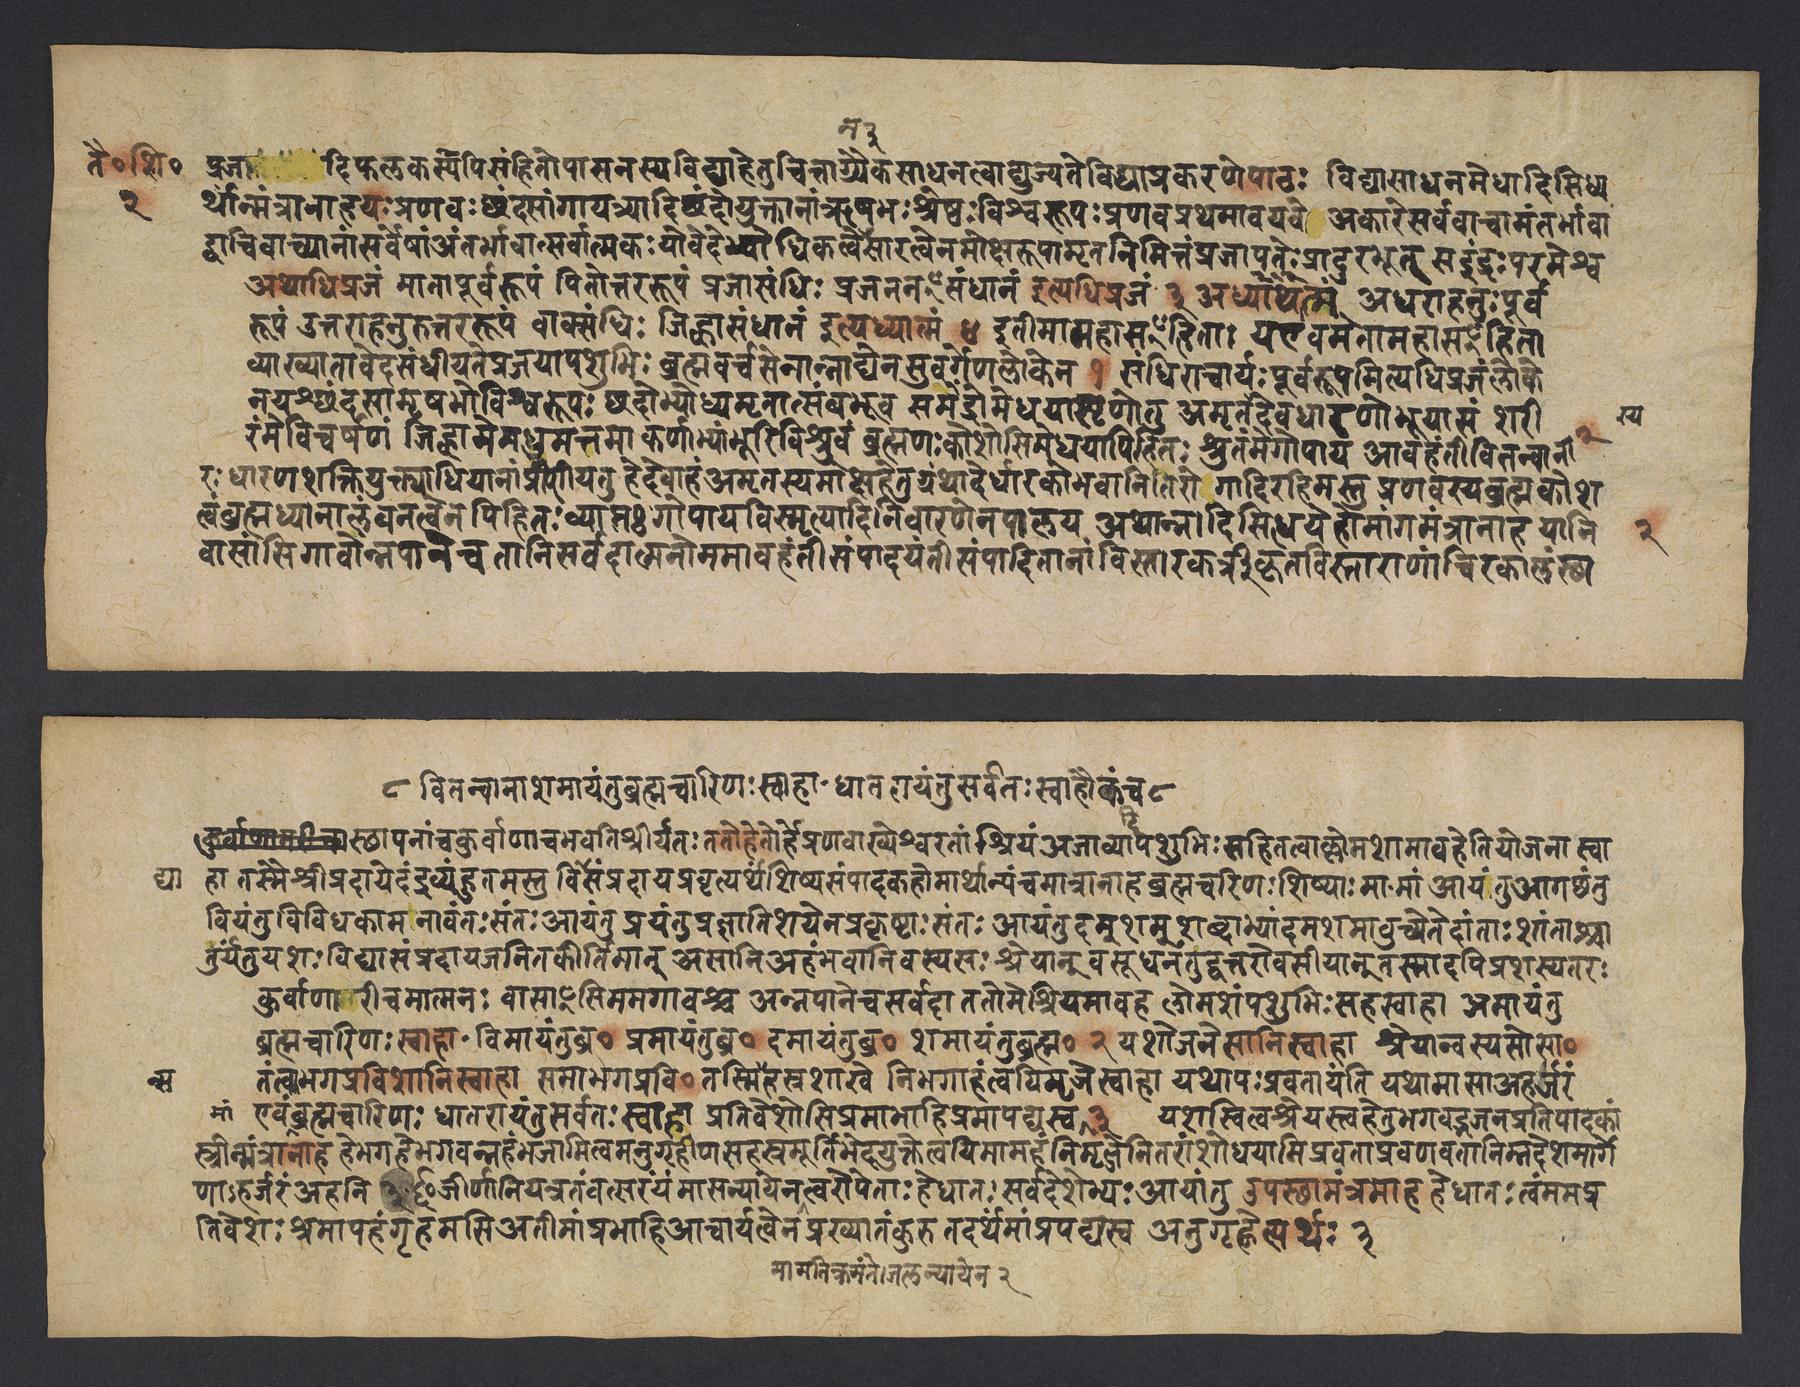 न ३
तै० शि० प्रजा दिफलकस्यपिसंहितोपासनस्यविद्याहेतुचित्तैकाग्र्यैकसाधनत्वाद्युज्यतेविद्याप्रकरणेपाठः विद्यासाधनमेधादिसिध्य
२ र्थान्मंत्रानाहयः प्रणवः छंदसांगायत्र्यादिछंदोयुक्तानांऋषभःश्रेष्ठःविश्वरूपःप्रणवप्रथमावयवे अकारेसर्ववाचामंतर्भावा
द्वाचिवाच्यानांसर्वेषांअंतर्भावात्सर्वात्मकःयोवेदेभ्योधिकत्वेसारत्वेनमोक्षरूपामृतनिमित्तंप्रजापतेःप्रादुरभूत् सइंद्रःपरमेश्व
अथाधिप्रजं मातापूर्वरूपं पितोत्तररूपं प्रजासंधिः प्रजननꣳसंधानं इत्यधिप्रजं ३ अथाध्यात्मं अधराहनुःपूर्व
रूपं उत्तराहनुरुत्तररूपं वाक्संधिः जिह्वासंधानं इत्यध्यात्मं ४ इतीमामहासꣳहिताः यएवमेतामहासꣳहिता
व्याख्यातावेदसंधीयतेप्रजयापशुभिः ब्रह्मवर्चसेनान्नाद्येनसुवर्गेणलोकेन १ संधिराचार्यःपूर्वरूपमित्यधिप्रजंलोके
नयश्छंदसामृषभोविश्वरूपः छंदोभ्योध्यमृतात्संबभूव समेंद्रोमेधयास्पृणोतु अमृतस्यदेवधारणोभूयासं शरी
रंमेविचर्षणं जिह्वामेमधुमत्तमा कर्णाभ्यांभूरिविश्रुवं ब्रह्मणःकोशोसिमेधयापिहितः श्रुतंमेगोपाय आवहंतीवितन्वाना २ स्य
रः धारणशक्तियुक्त्याधियामांप्रीणीयतु हेदेवाहंअमृतस्यमोक्षहेतुग्रंथादेर्धारकोभवानितिरोगादिरहितमस्तु प्रणवस्यब्रह्मकोश
त्वंब्रह्मध्यानालंबनत्वेनपिहितःव्याप्तः गोपायविस्मृत्यादिनिवारणेनपालय अथान्नादिसिधयेहोमांगमंत्रानाह यानि २
वासांसिगावोन्नपानेच तानिसर्वदात्मनोममावहंतीसंपादयंतीसंपादितानांविस्तारकर्त्रीकृतविस्ताराणांचिरकालंस्था
८ वितन्वानाशमायंतुब्रह्मचारिणःस्वाहा धातरायंतुसर्वतःस्वाहैकंच ८
स्थापनांचकुर्वाणाचभवतिश्रीर्यतःततोहेतोर्हेप्रणवाख्येश्वरतांश्रियंअजाव्यादिपशुभिःसहितत्वाल्लोमशामावहेतियोजना स्वा
द्या हा तस्मैश्रीप्रदायेदंद्रव्यंहुतमस्तु विसंप्रदायप्रवृत्यर्थंशिष्यसंपादकहोमार्थान्पंचमात्रानाहब्रह्मचरिणःशिष्याःमामां आयंतुआगछंतु
वियंतुविविधकामनावंतःसंतःआयंतु प्रयंतुप्रज्ञातिशयेनप्रकृष्टाःसंतः आयंतुदमुशमुशब्दाभ्यांदमशमावुच्येतेदांताःशांताश्चा
तुर्यतुयशःविद्यासंप्रदायजनितकीर्तिमान् असानिअहंभवानिवस्यसःश्रेयान् वसूधनंतद्वत्तरोवसीयान्तस्मादपिप्रशस्यतरः
कुर्वाणाचीरमात्मनः वासाꣳसिममगावश्च अन्नपानेचसर्वदा ततोमेश्रियमावह लोमशांपशुभिःसहस्वाहा आमायंतु
ब्रह्मचारिणःस्वाहा विमायंतुब्र० प्रमायंतुब्र० दमायंतुब्र० शमायंतुब्रह्म० २ यशोजनेसानिस्वाहा श्रेयान्वस्यसोसा०
तंत्वाभगप्रविशानिस्वाहा समाभगप्रवि० तस्मिन्सहस्रशाखे निभगाहंत्वयिमृजेस्वाहा यथापःप्रवतायंति यथामासाअहर्जरं
मां एवंब्रह्मचारिणः धातरायंतुसर्वतःस्वाहा प्रतिवेशोसिप्रमाभाहिप्रमापद्यस्व ३ यशस्वित्वश्रेयस्त्वहेतुभगवद्भजनप्रतिपादकां
स्त्रीन्मंत्रानाह हेभगहेभगवन्नहंभजामित्वमनुगृहीणसहस्रमूर्तिभेदयुक्तेत्वयिमामहंनिमृजेनितरांशोधयामिप्रवताप्रवणवतानिम्नदेशमार्गे
णाऽहर्जरंअहनि जीर्णानियत्रतंवत्सरंयं मासन्यायेनत्वरोपेताःहेधातःसर्वदेशेभ्यः आयांतु उपस्थामंत्रमाह हेधातःत्वंममप्र
तिवेशःश्रमापहंगृहमसिअतोमांप्रभाहिआचार्यत्वेनप्रख्यातंकुरु तदर्थंमांप्रपद्यस्व अनुगृह्णेत्यर्थः ३
मामतिक्रमंतेजलन्यायेन २